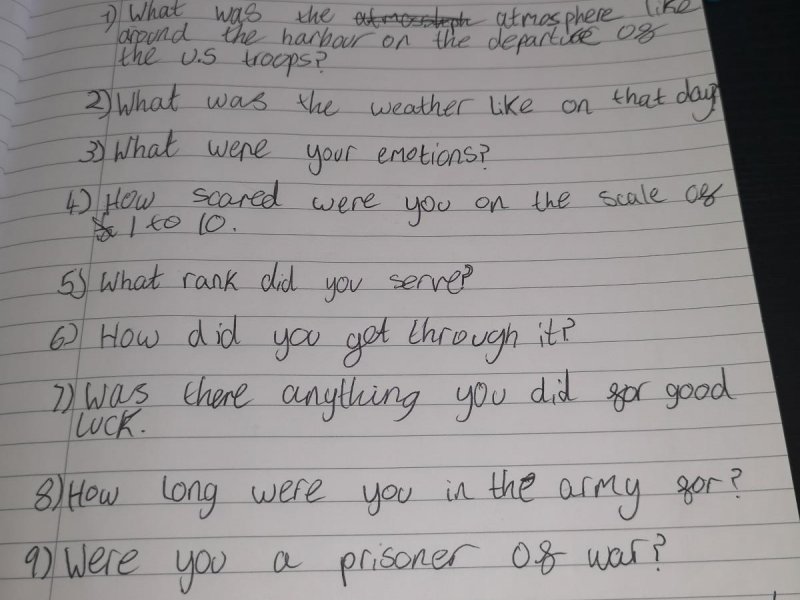 1) What was the atmosphere like
around the harbour on the departure of
the U.S troops?
2) What was the weather like on that day
3) What were your emotions?
4) How scared were you on the scale of
1 to 10.
5) What rank did you serve?
6) How did you get through it?
7) Was there anything you did for good
luck.
8) How long were you in the army for?
9) Were you a prisoner of war?